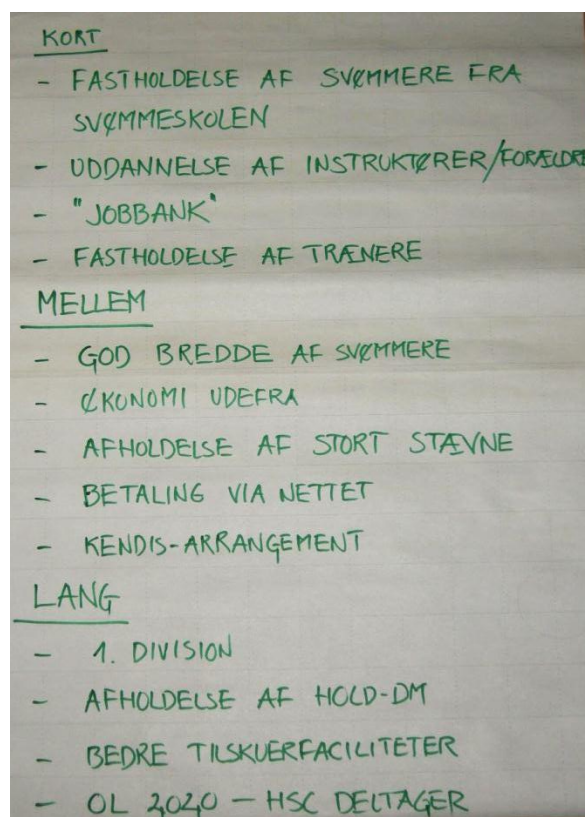 KORT
- FASTHOLDELSE AF SVØMMERE FRA
SVØMMESKOLEN
- UDDANNELSE AF INSTRUKTØRER/FORÆLDRE
- "JOBBANK"
- FASTHOLDELSE AF TRÆNERE
MELLEM
- GOD BREDDE AF SVØMMERE
- ØKONOMI UDEFRA
- AFHOLDELSE AF STORT STÆVNE
- BETALING VIA NETTET
- KENDIS-ARRANGEMENT
LANG
- 1. DIVISION
- AFHOLDELSE AF HOLD-DM
- BEDRE TILSKUERFACILITETER
- OL 2020 - HSC DELTAGER